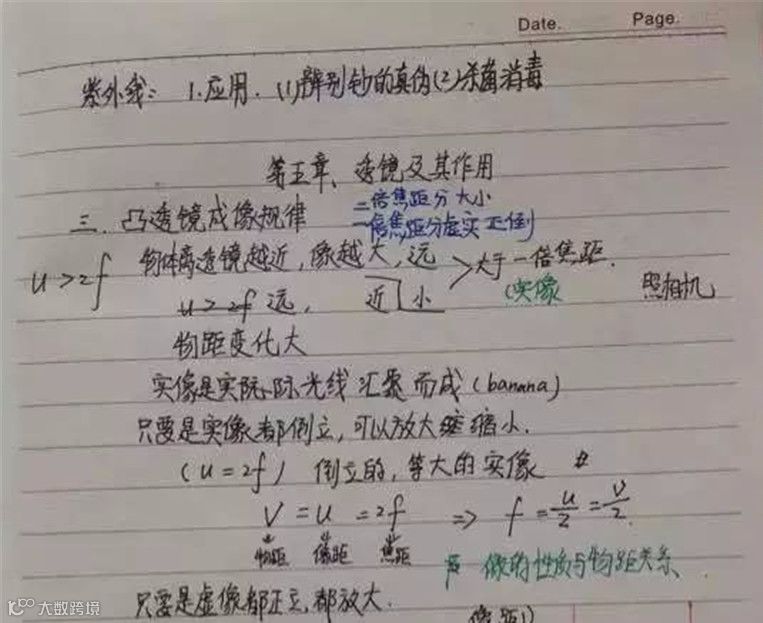 Date. Page.
紫外线: 1.应用. (1)辨别钞的真伪(2)杀菌消毒
第五章、透镜及其作用
二倍焦距分大小
三. 凸透镜成像规律 一倍焦距分虚实正倒
u>2f 物体离透镜越近,像越大,远 >大于一倍焦距.
u>2f 远, 近 小 (实像 照相机
物距变化大
实像是实际光线汇聚而成(banana)
只要是实像都倒立,可以放大缩小.
(u=2f) 倒立的,等大的实像
V=u=2f => f=u/2=v/2.
物距 像距 焦距
像的性质与物距关系、
只要是虚像都正立,都放大.
像距
大数跨境